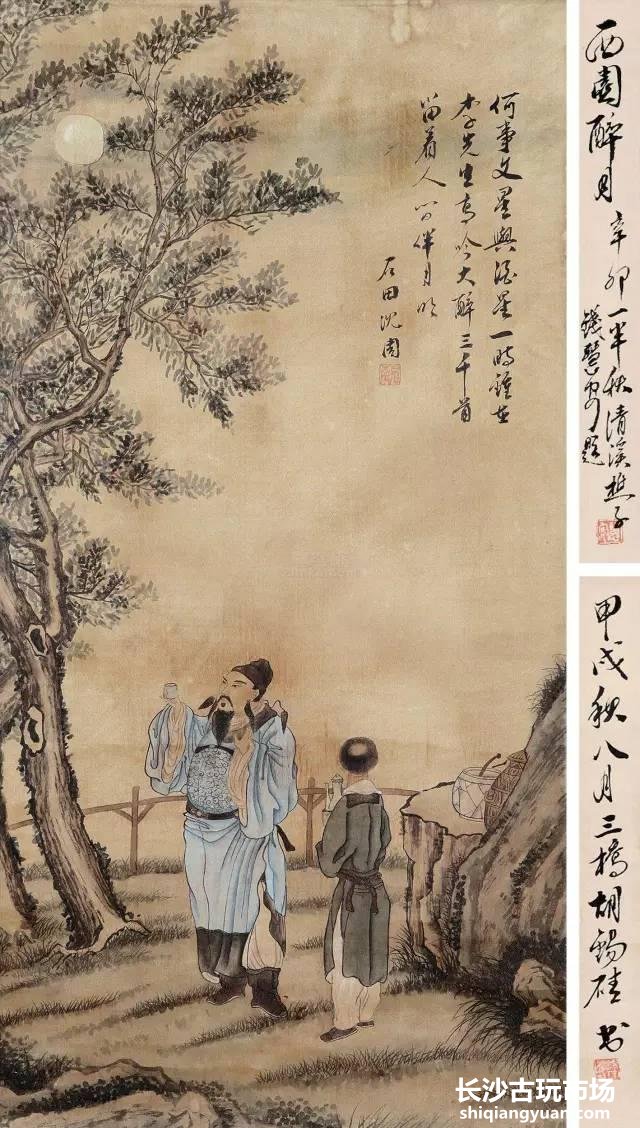 何事文星與酒星一時鍾在
李先生高吟大醉三千首
留着人間伴月明
石田沈周
西園醉月
辛卯一半秋清溪樵子
錢慧安題
甲戌秋八月三橋胡錫珪書
长沙古玩市场
shiqiangyuan.com